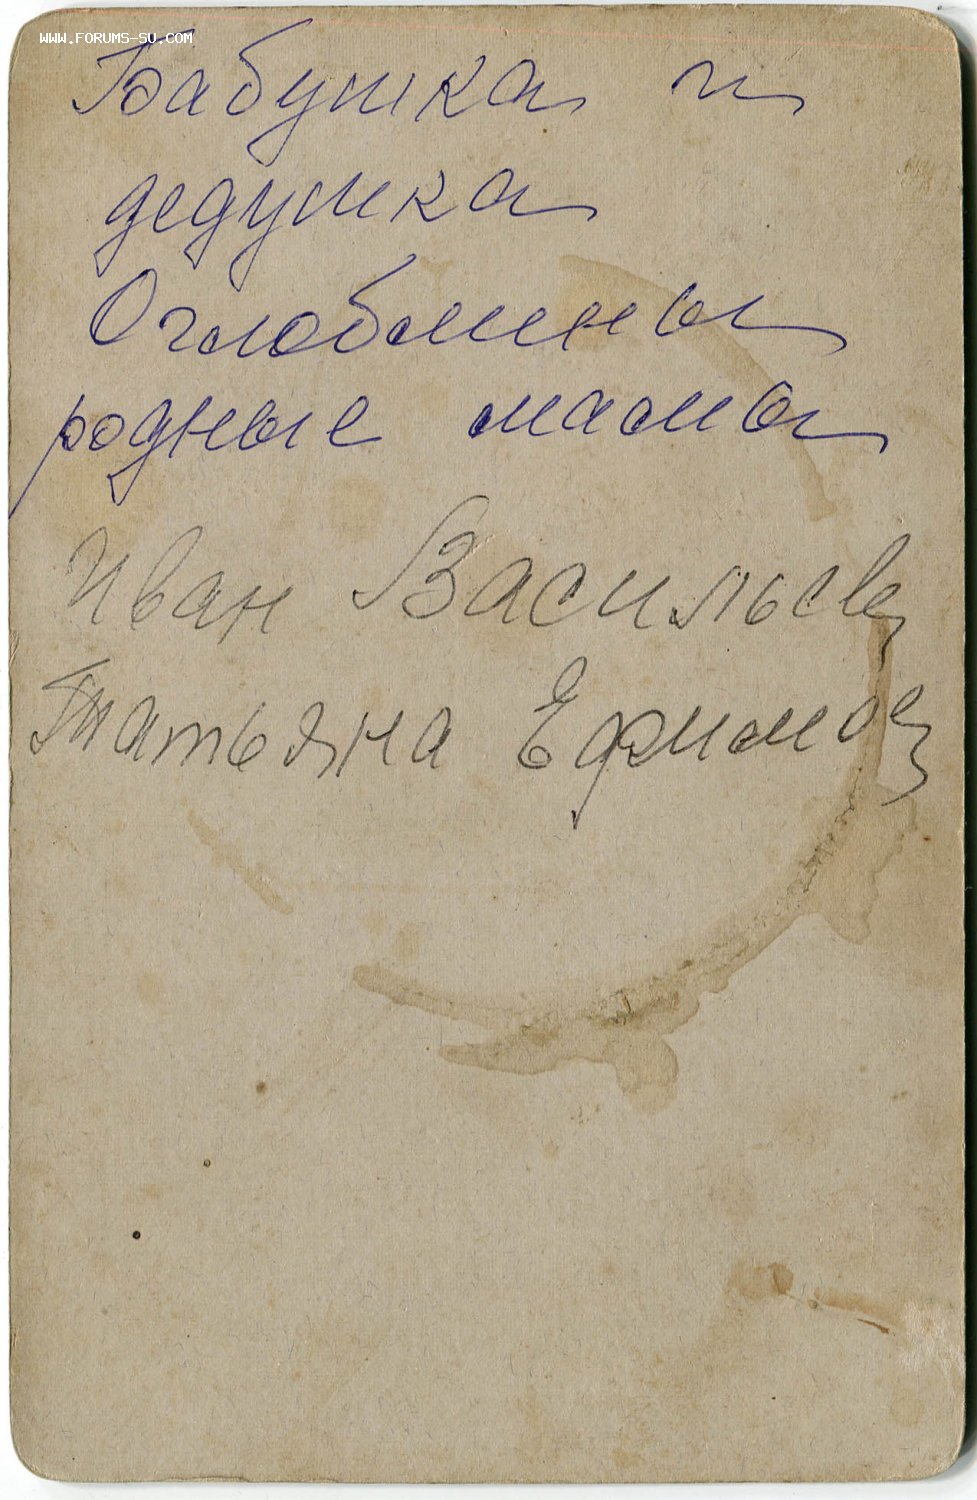 WWW.FORUMS-SU.COM
Бабушка и
дедушка
Оглоблины
родные мамы
Иван Васильев
Татьяна Ефимов